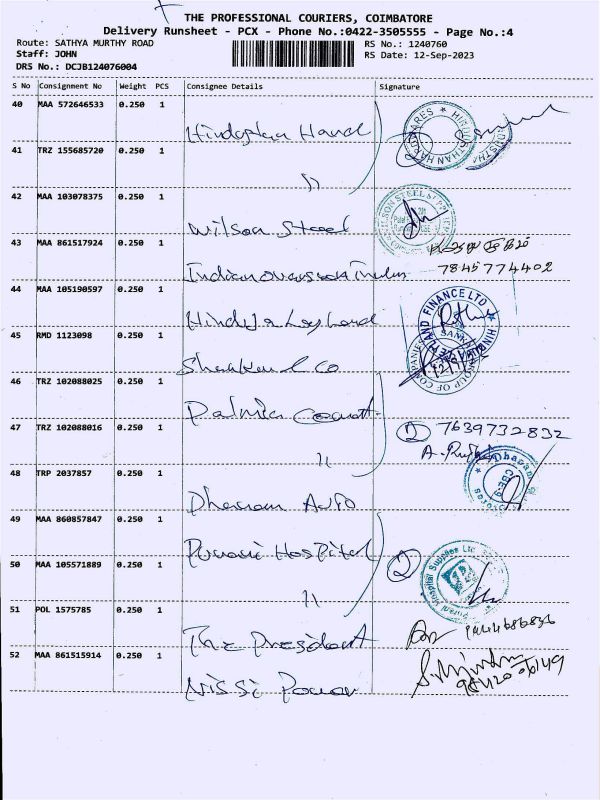 THE PROFESSIONAL COURIERS, COIMBATORE
Delivery Runsheet - PCX - Phone No.:0422-3505555 - Page No.:4
Route: SATHYA MURTHY ROAD RS No.: 1240760
Staff: JOHN RS Date: 12-Sep-2023
DRS No.: DCJB124076004
S No Consignment No Weight PCS Consignee Details Signature
40 MAA 572646533 0.250 1
Hindustan Hard
41 TRZ 155685720 0.250 1
"
42 MAA 103078375 0.250 1
Wilson Steel
43 MAA 861517924 0.250 1
Indian Overseas
7845774402
44 MAA 105190597 0.250 1
Hinduja Leyland
HINDUJA LEYLAND FINANCE LTD
45 RMD 1123098 0.250 1
Shankar & Co
SANKAR GROUP OF COMPANIES
46 TRZ 102088025 0.250 1
Dalmia Cement
47 TRZ 102088016 0.250 1
② 7639732832
"
48 TRP 2037857 0.250 1
Dharani Auto
49 MAA 860857847 0.250 1
Purani Hospital
②
Purani Hospital Supplies
50 MAA 105571889 0.250 1
"
51 POL 1575785 0.250 1
The President
52 MAA 861515914 0.250 1
Nissi Power